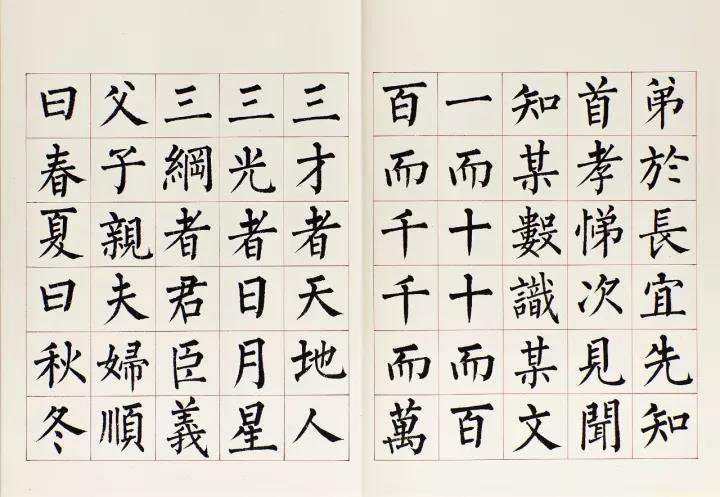 弟於長宜先知
首孝悌次見聞
知某數識某文
一而十十而百
百而千千而萬
三才者天地人
三光者日月星
三綱者君臣義
父子親夫婦順
曰春夏曰秋冬